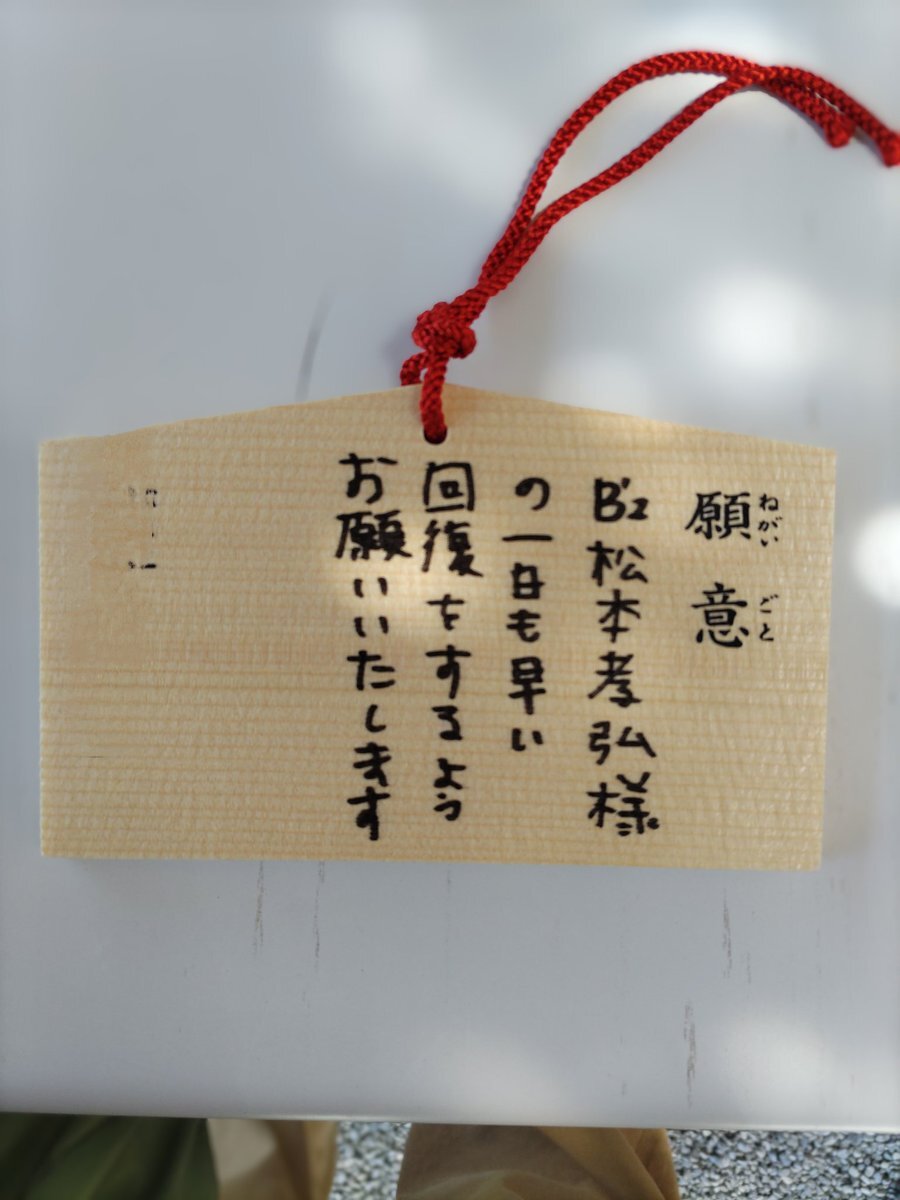 願意
ねがいごと
B'z松本孝弘様
の一日も早い
回復をするよう
お願いいたします